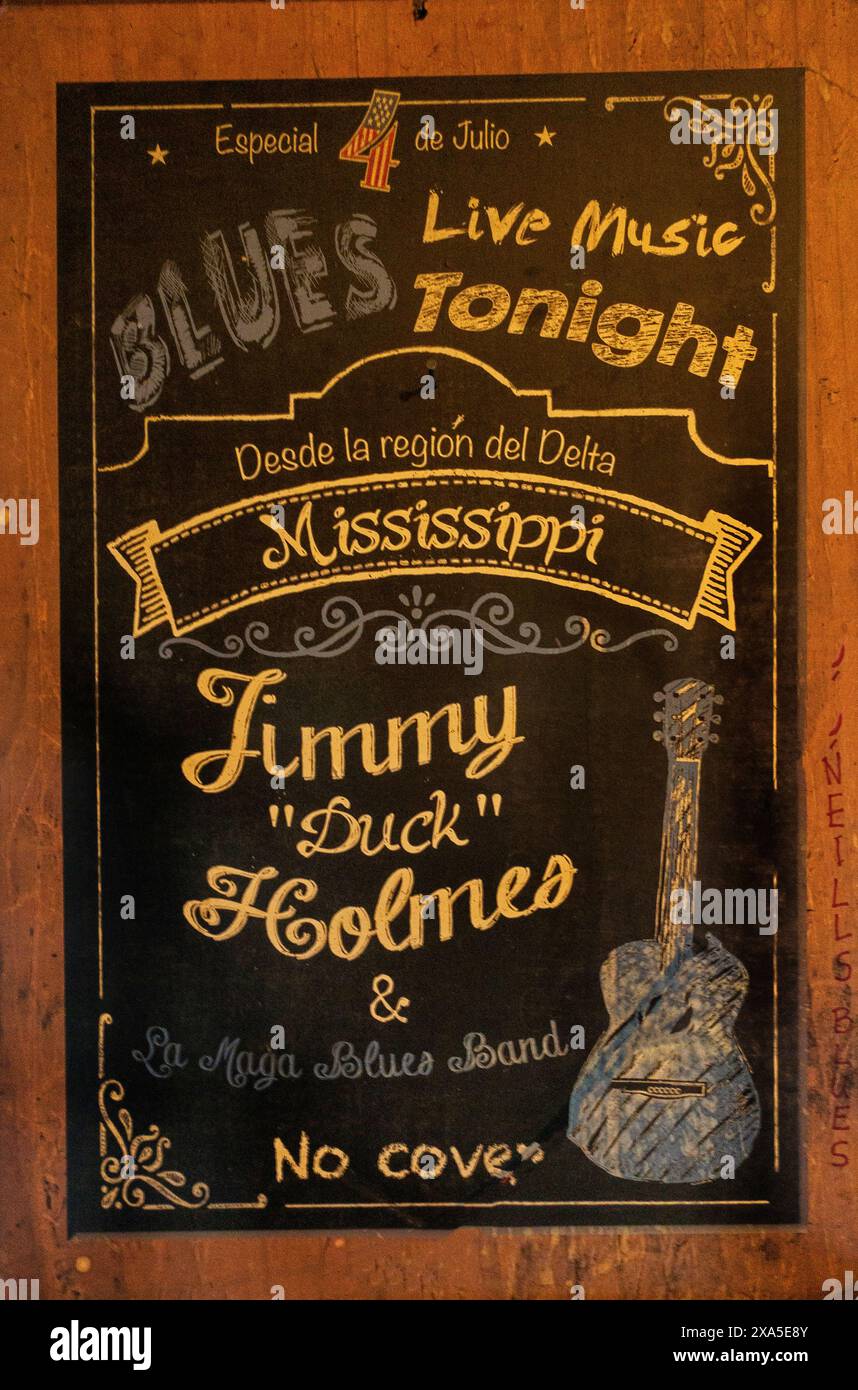 Especial 4 de Julio
BLUES
Live Music
Tonight
Desde la región del Delta
Mississippi
Jimmy
"Duck"
Holmes
&
La Maga Blues Band
No cover
NEILLS BLUES
alamy
a
Image ID: 2XA5E8Y
www.alamy.com